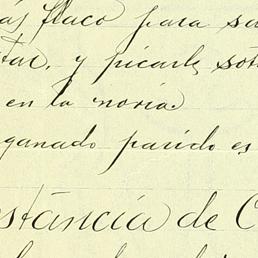 ás flaco para su
tar, y picarle, sot
en la noria.
ganado parido es
stancia de C